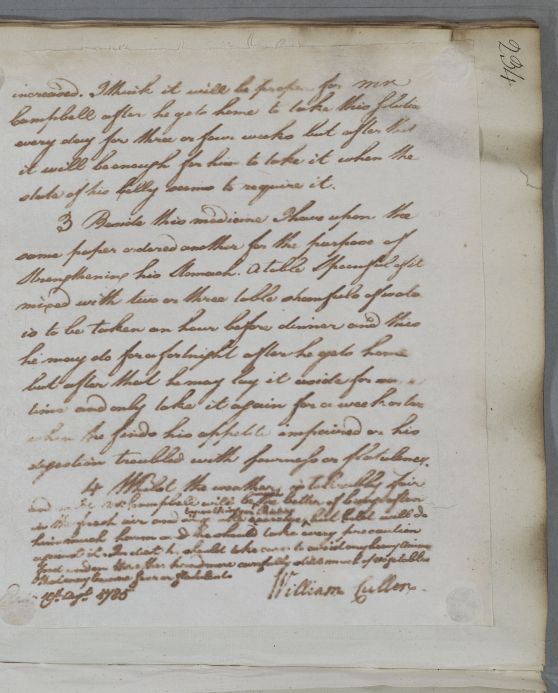 234
increased. I think it will be proper for Mr
Campbell after he gets home to take this Solution
every day for three or four weeks but after that
it will be enough for him to take it when the
state of his belly seems to require it.
3 Beside this medicine I have upon the
same paper ordered another for the purpose of
Strengthening his Stomach. A table Spoonful of it
mixed with two or three table spoonfuls of water
is to be taken an hour before dinner and this
he may do for a fortnight after he gets home
but after that he may lay it aside for
time and only take it again for a week or two
when he finds his appetite impaired or his
digestion troubled with sourness or flatulency.
4 Whilst the weather is tolerably fair
and Mr Campbell will be the better of being often
in the fresh air and but cold will do
him much harm and he should take every precaution
against it. In diet he should take care to avoid any heavy
food and
that may become sour or flatulent
19 Augt 1785
William Cullen